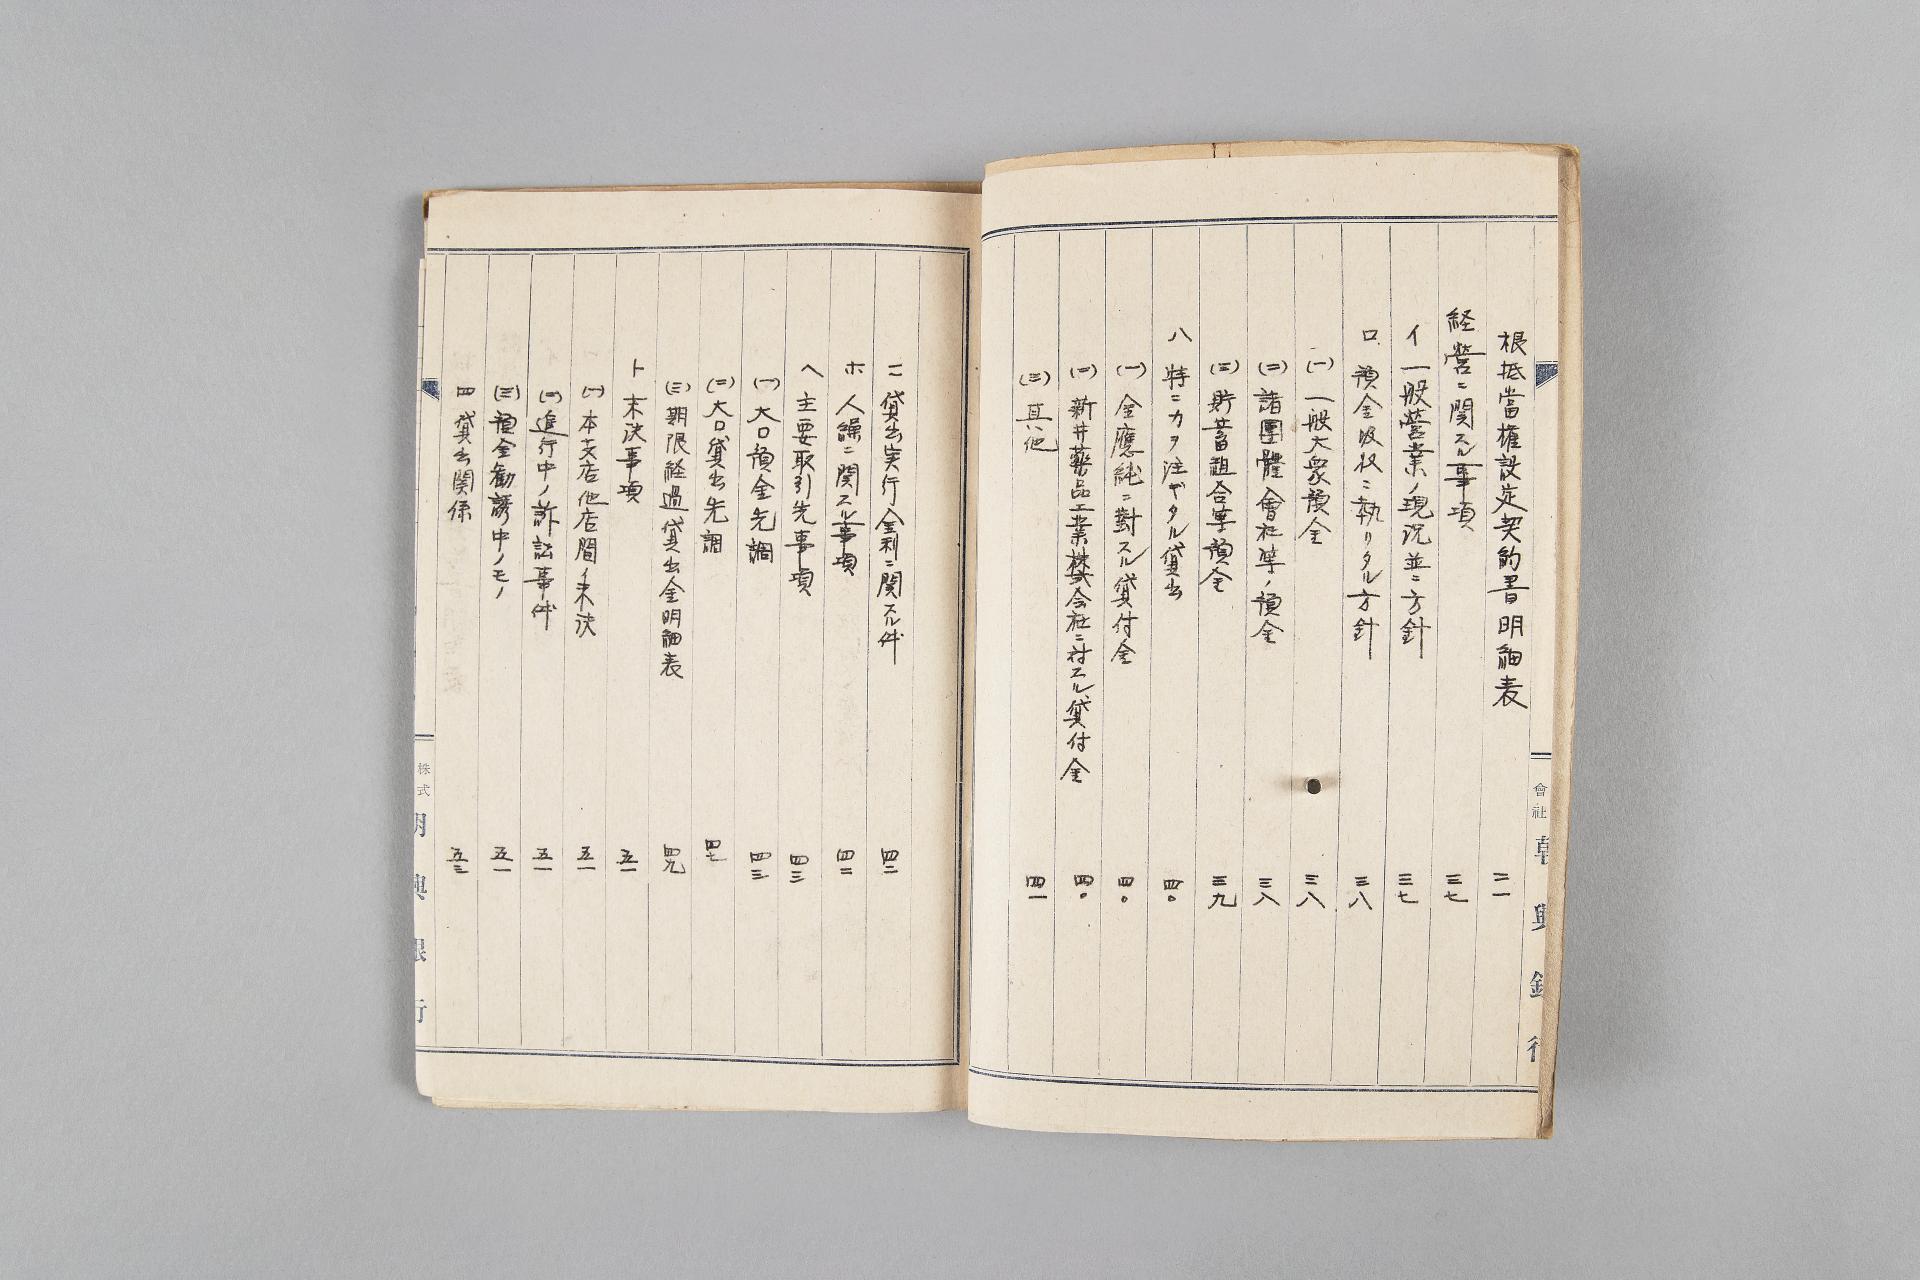 根抵當権設定契約書明細表 二一
経営ニ関スル事項 三七
イ 一般営業ノ現況並ニ方針 三七
ロ 預金吸収ニ執リタル方針 三八
(一) 一般大衆預金 三八
(二) 諸團體會社等ノ預金 三八
(三) 貯蓄組合軍預金 三九
ハ 特ニ力ヲ注ギタル貸出 四〇
(一) 金應純ニ對スル貸付金 四〇
(二) 新井薬品工業株式会社ニ対スル貸付金 四〇
(三) 其他 四一
ニ 貸出実行金利ニ関スル件 四二
ホ 人繰ニ関スル事項 四二
ヘ 主要取引先事項 四三
(一) 大口預金先調 四三
(二) 大口貸出先調 四七
(三) 期限経過貸出金明細表 四九
ト 未決事項 五一
(一) 本支店他店間ノ未決 五一
(二) 進行中ノ訴訟事件 五一
(三) 預金勧誘中ノモノ 五一
四 貸出関係 五二
會社 朝興銀行
株式 朝興銀行